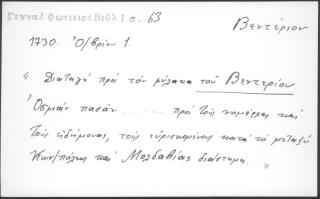 Γενναδ Φωτιειος Βιβλ 1 σ. 63
Βεντέριον
1730. Ὀ/βρίου 1.
"Διαταγὴ πρὸς τὸν φύλακα τοῦ Βεντερίου
Ὀσμὰν πασᾶν ...... πρὸς τοὺς νομάρχας καὶ
τοὺς εἰδήμονας, τοὺς εὑρισκομένους κατὰ τὸ μεταξὺ
Κων/πόλεως καὶ Μολδαβίας διάστημα."